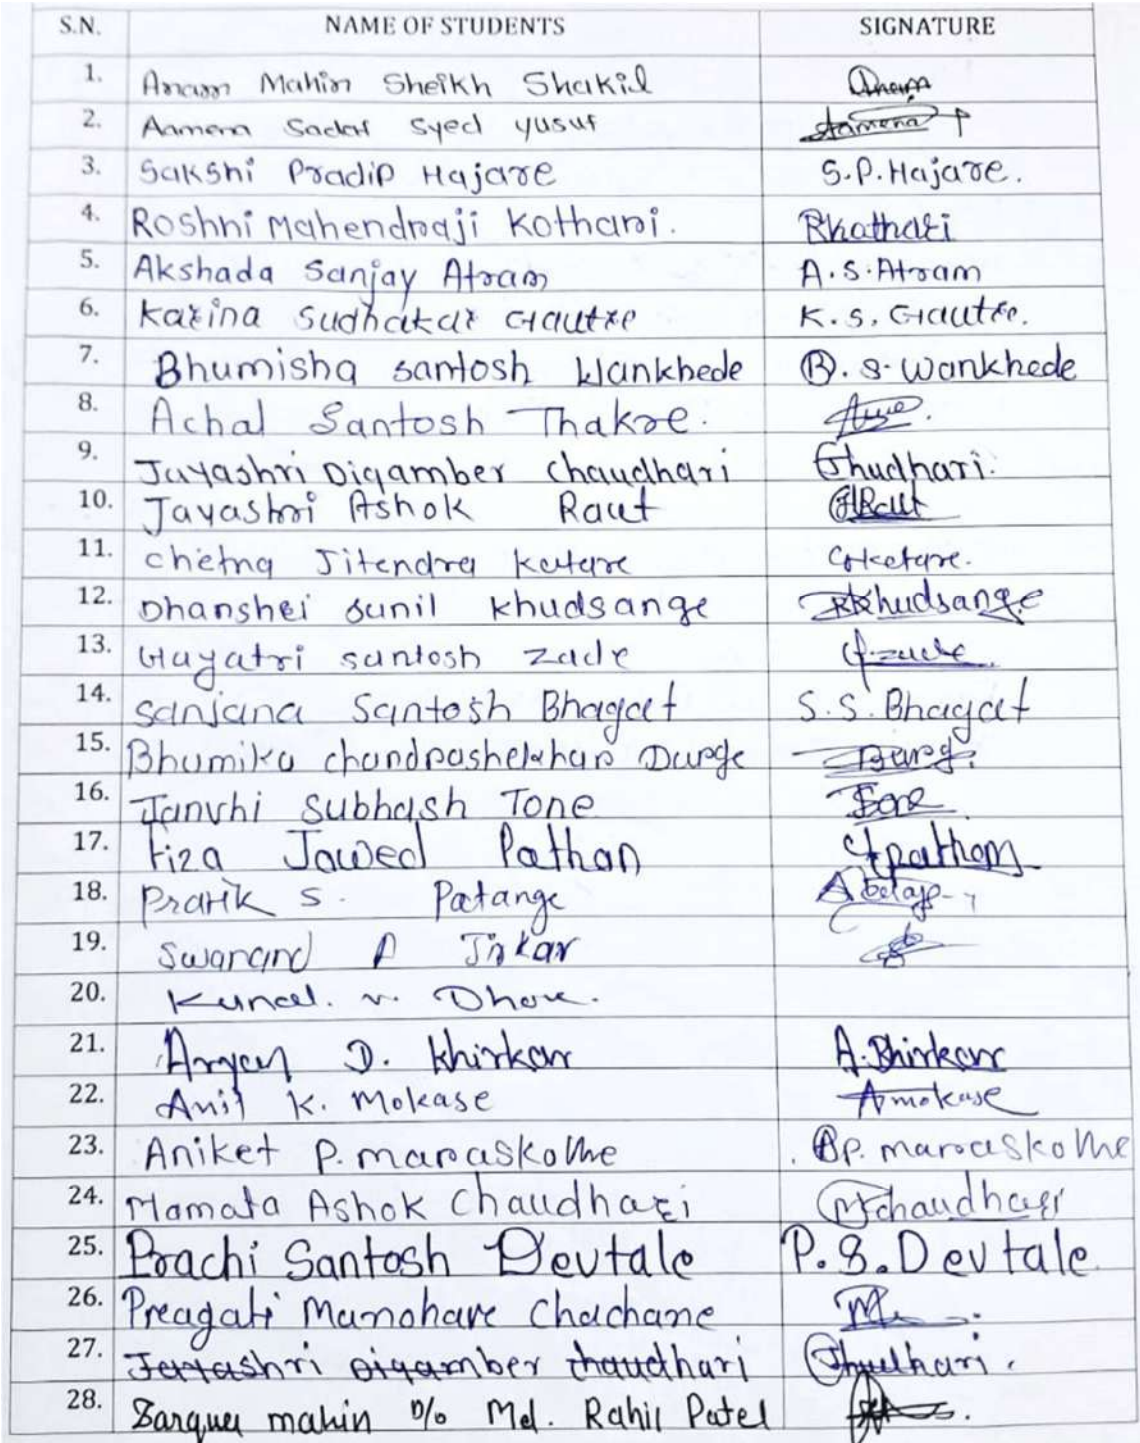 S.N. NAME OF STUDENTS SIGNATURE
1. Anam Mahin Sheikh Shakil Anam
2. Aamena Sadaf Syed Yusuf Aamena
3. Sakshi Pradip Hajare S.P.Hajare.
4. Roshni Mahendraji Kothari. RKothari
5. Akshada Sanjay Atram A.S.Atram
6. Karina Sudhakar Gautre K.S.Gautre.
7. Bhumisha santosh Wankhede B.S.Wankhede
8. Achal Santosh Thakre.
9. Jayashri Digamber chaudhari Chudhari.
10. Jayashri Ashok Raut Raut
11. chetna Jitendra katare
12. Dhanshri sunil khudsange khudsange
13. Gayatri santosh zade G.zade
14. sanjana Santosh Bhagat S.S.Bhagat
15. Bhumika chandrashekhar Durge Durge
16. Janvhi Subhash Tone Tone
17. Fiza Jawed Pathan Fpathan
18. Pratik S. Patange
19. Swanand Jirkar
20. Kunal. v. Dhore.
21. Aryan D. Khirkar A.Khirkar
22. Anil K. Mokase Amokase
23. Aniket P. maraskolhe AP. maraskolhe
24. Mamata Ashok Chaudhari Mchaudhari
25. Prachi Santosh Devtale P.S.Devtale
26. Preagati Manohare Chachane
27. Jayashri Digamber chaudhari Chudhari.
28. mahin D/o Md. Rahil Patel